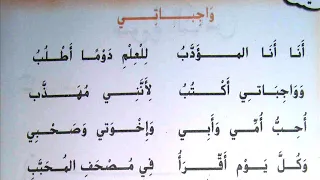 وَاجِبَاتِي
أَنَا أَنَا المُؤَدَّبُ لِلْعِلْمِ دَوْمًا أَطْلُبُ
وَوَاجِبَاتِي أَكْتُبُ لِأَنَّنِي مُهَذَّب
أُحِبُّ أُمِّي وَأَبِي وَإِخْوَتِي وَصَحْبِي
وَكُلَّ يَوْمٍ أَقْرَأُ فِي مُصْحَفِ المُحَبَّبِ